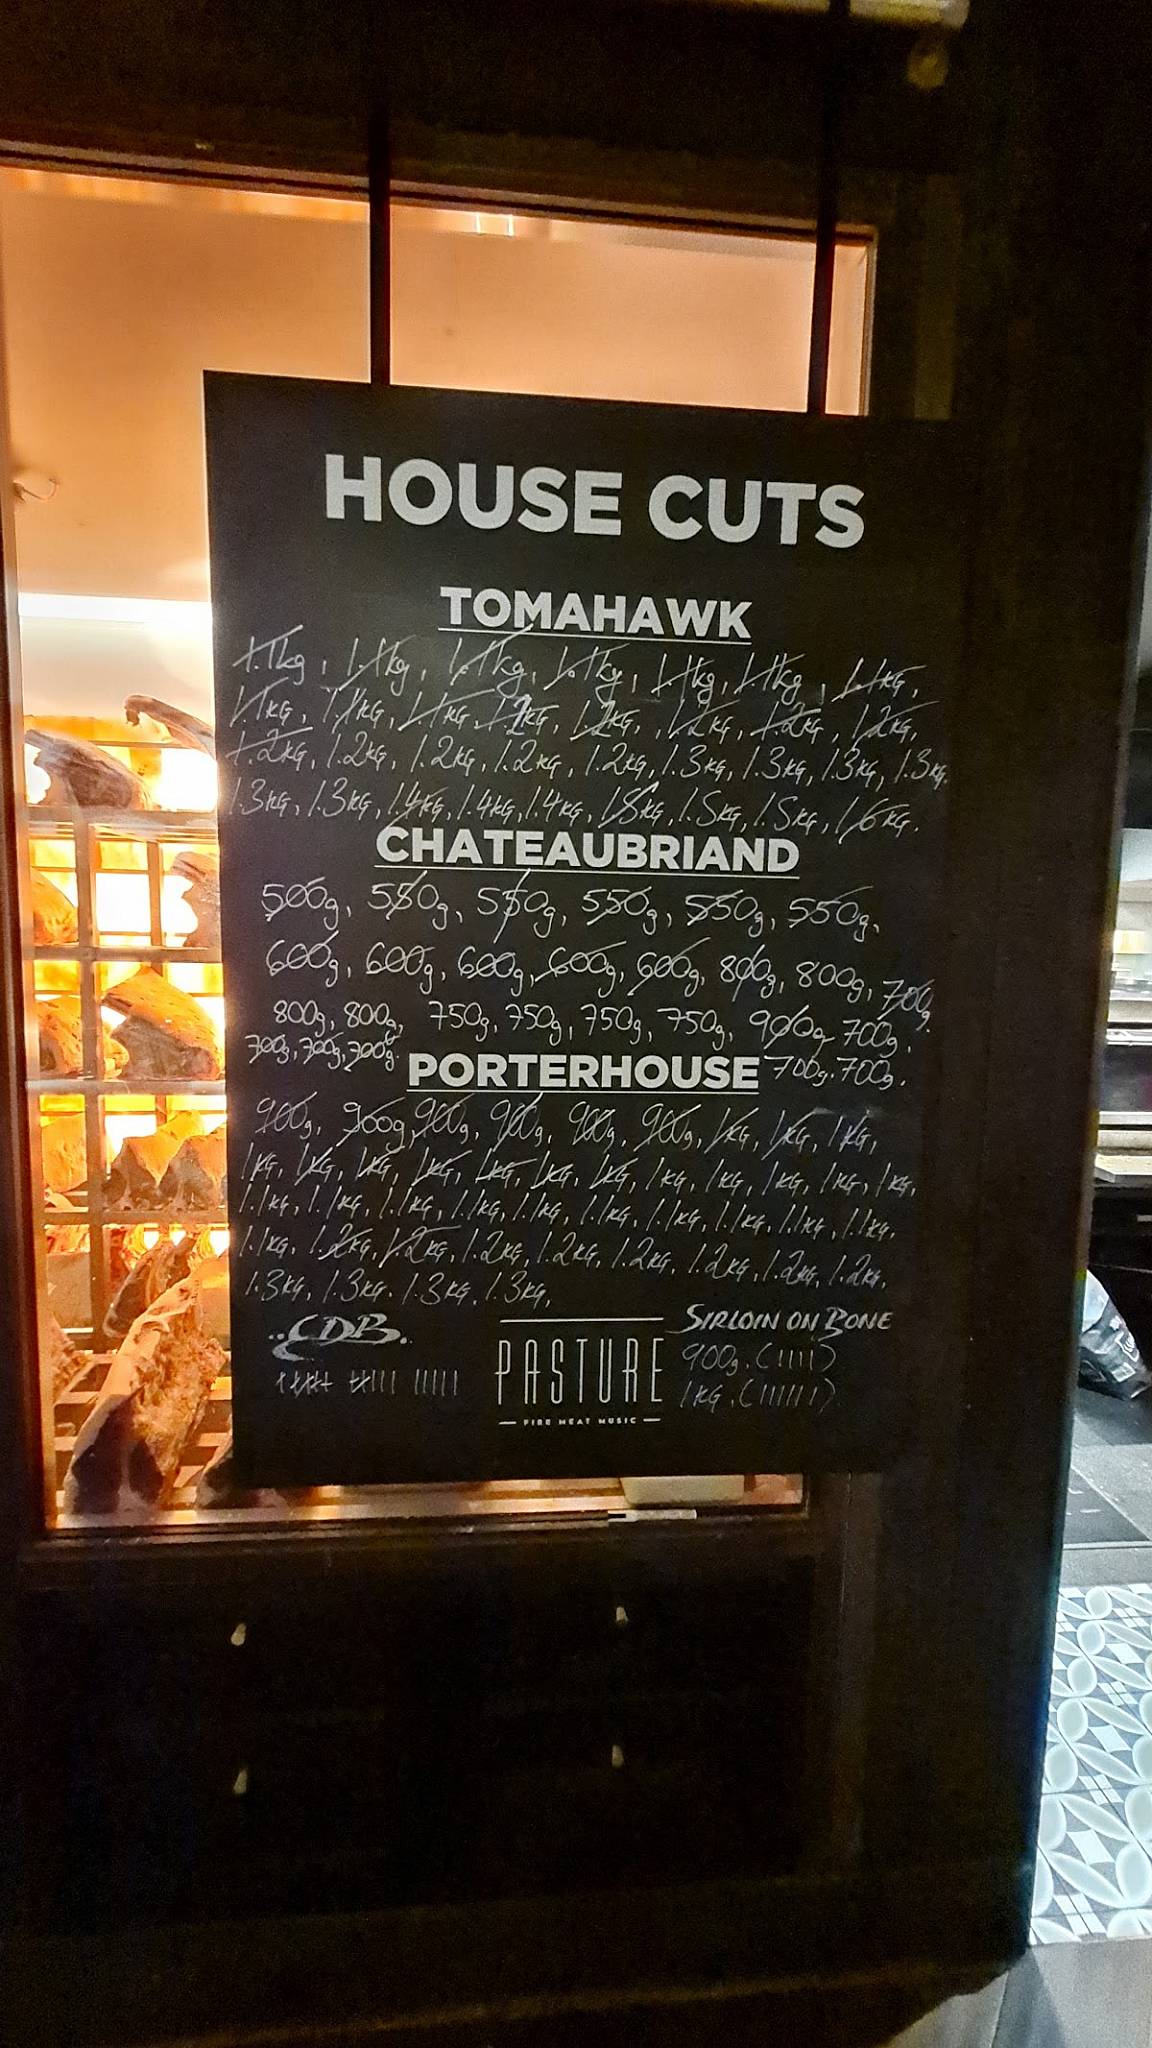 HOUSE CUTS
TOMAHAWK
1.1kg, 1.1kg, 1.1kg, 1.1kg, 1.1kg, 1.1kg, 1.1KG,
1.1KG, 1.1KG, 1.1KG, 1.2KG, 1.2KG, 1.2KG, 1.2KG, 1.2KG,
1.2KG, 1.2KG, 1.2KG, 1.2KG, 1.2KG, 1.3KG, 1.3KG, 1.3KG, 1.3KG.
1.3KG, 1.3KG, 1.4KG, 1.4KG, 1.4KG, 1.5KG, 1.5KG, 1.5KG, 1.6KG.
CHATEAUBRIAND
500g, 550g, 550g, 550g, 550g, 550g,
600g, 600g, 600g, 600g, 600g, 800g, 800g, 700g.
800g, 800g, 750g, 750g, 750g, 750g, 900g, 700g,
700g, 700g, 700g. 700g. 700g.
PORTERHOUSE
900g, 900g, 900g, 900g, 900g, 900g, 1KG, 1KG, 1KG,
1KG, 1KG, 1KG, 1KG, 1KG, 1KG, 1KG, 1KG, 1KG, 1KG, 1KG, 1KG,
1.1KG, 1.1KG, 1.1KG, 1.1KG, 1.1KG, 1.1KG, 1.1KG, 1.1KG, 1.1KG, 1.1KG,
1.1KG, 1.2KG, 1.2KG, 1.2KG, 1.2KG, 1.2KG, 1.2KG, 1.2KG, 1.2KG,
1.3KG, 1.3KG. 1.3KG, 1.3KG,
CDB
SIRLOIN ON BONE
900g. (IIII)
1KG. (IIIIII)
PASTURE
FIRE MEAT MUSIC